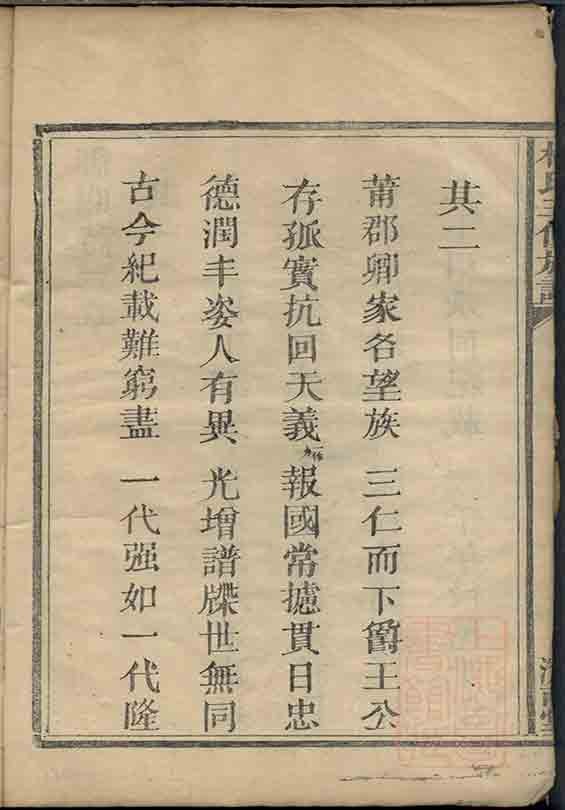 其二
莆郡卿家名望族 三仁而下爵王公
存孤實抗回天義 報國常攄貫日忠
德潤丰姿人有異 光增譜牒世無同
古今紀載難窮盡 一代强如一代隆